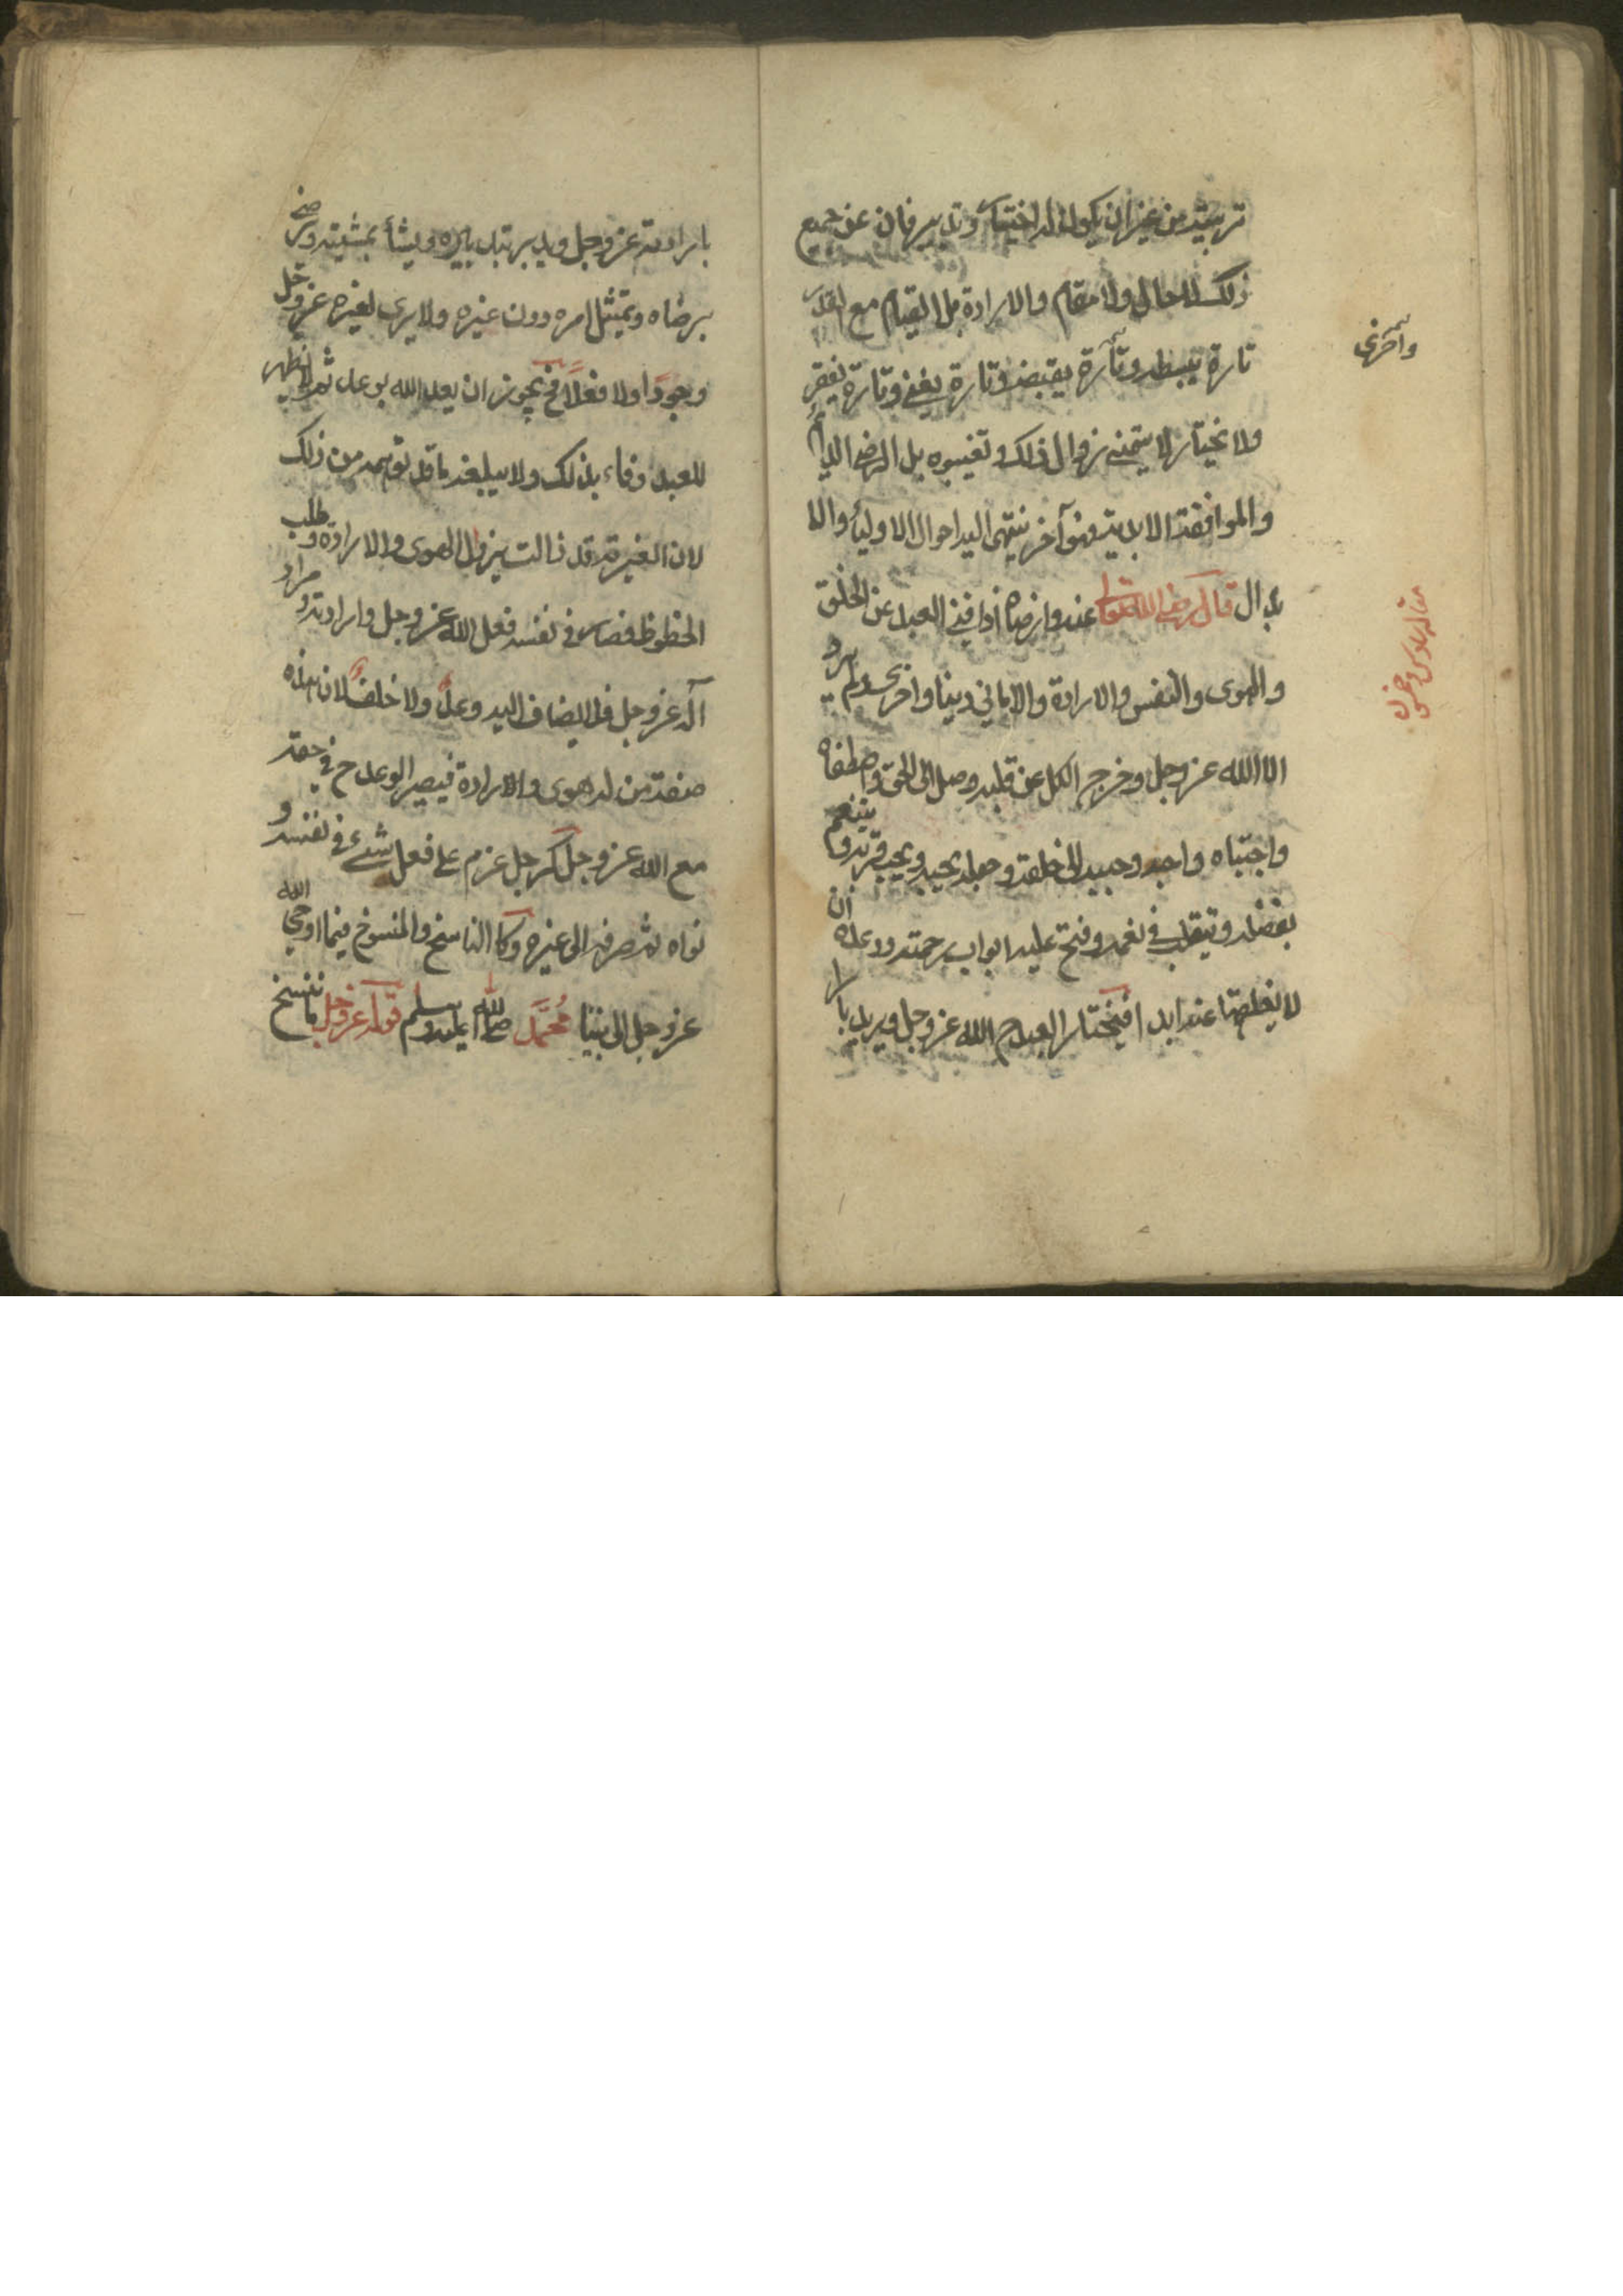 تربيته من غير ان يكون له اختيار وتدبير فان عن جميع
ذلك لا حال ولا مقام والا ارادة بل القيام مع القدر
تارة يبسطه وتارة يقبضه وتارة يغنى وتارة يفقر
ولا نختار لا يتمنى زوال ذلك وتغييره بل الرضا الدايم
والموافقة الابدية وهو آخر ينتهى اليه احوال الاولياء والا
بدال قال رضى الله تعالى عنه وارضاه اذا فنى العبد عن الخلق
والهوى والنفس والارادة والاماني دينا واخرى ولم يرد
الا الله عز وجل وخرج الكل عن قلبه وصل الى الحق واصطفاه
واجتباه واحبه وحببه الى خلقه وجعله يحبه ويحب قربه ويتنعم
بفضله ويتقلب في نعمه وفتح عليه ابواب رحمته ووعده ان
لا يغلقها عنه ابدا فيختار العبد ح الله عز وجل ويريد بار
مقاله سادس وخمسون
بارادته عز وجل ويدبر بتدبيره ويشأ بمشيته ويرضى
برضاه ويمتثل امره دون غيره ولا يرى لغيره عز وجل
وجودا ولا فعلا فح يجوز ان يعد الله بوعد ثم لا يظهر
للعبد وفاء بذلك ولا يبلغه ما قد توهمه من ذلك
لان الغيرية قد زالت بزوال الهوى والارادة وطلب
الحظوظ فصار في نفسه فعل الله عز وجل وارادته ومراد
آله عز وجل فلا يضاف اليه وعد ولا خلف لان هذه
صفة من له هوى والارادة فيصير الوعد ح في حقه
مع الله عز وجل كرجل عزم على فعل شيء في نفسه و
نواه ثم صرفه الى غيره وكا الناسخ والمنسوخ فيما اوحى الله
عز وجل الى نبينا محمد صلى الله عليه وسلم قوله عز وجل ما ننسخ